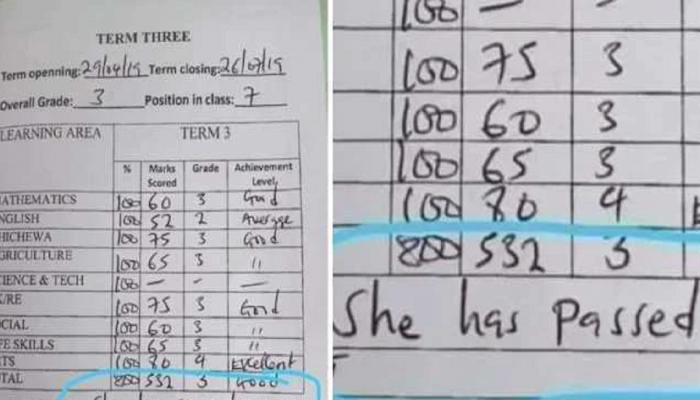 TERM THREE
Term openning: 29/04/19 Term closing: 26/07/19
Overall Grade: 3 Position in class: 7
LEARNING AREA TERM 3
% Marks Scored Grade Achievement Level
ATHEMATICS 100 60 3 Good
NGLISH 100 52 2 Average
HICHEWA 100 75 3 Good
GRICULTURE 100 65 3 "
IENCE & TECH 100 — — —
/RE 100 75 3 Good
CIAL 100 60 3 "
FE SKILLS 100 65 3 "
TS 100 80 4 Excellent
OTAL 800 532 3 Good
100 —
100 75 3
100 60 3
100 65 3
100 80 4
800 532 3
She has passed